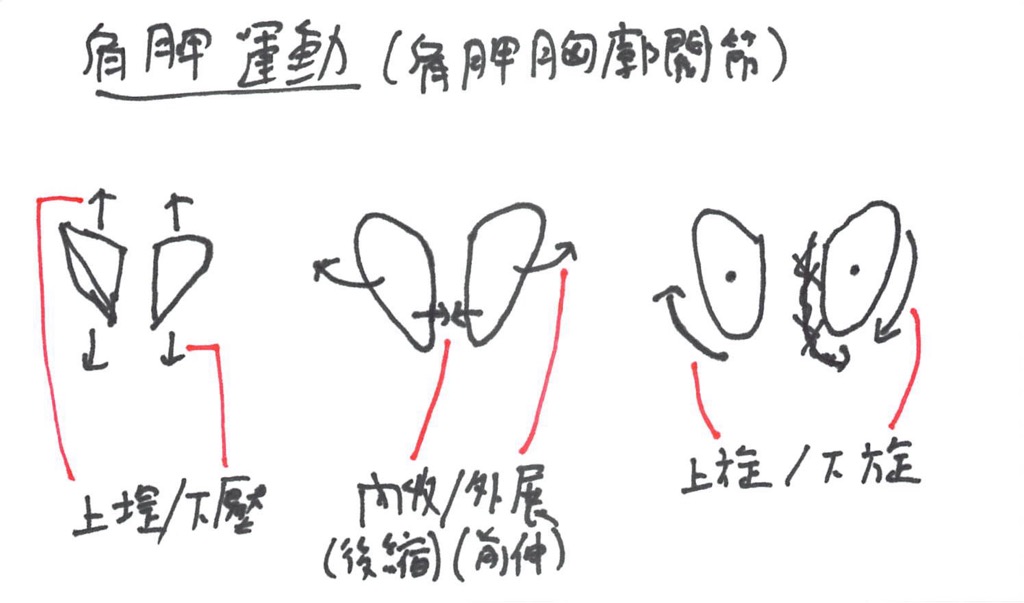 肩胛運動(肩胛胸廓關節)
上提/下壓
內收/外展
(後縮)(前伸)
上旋/下旋